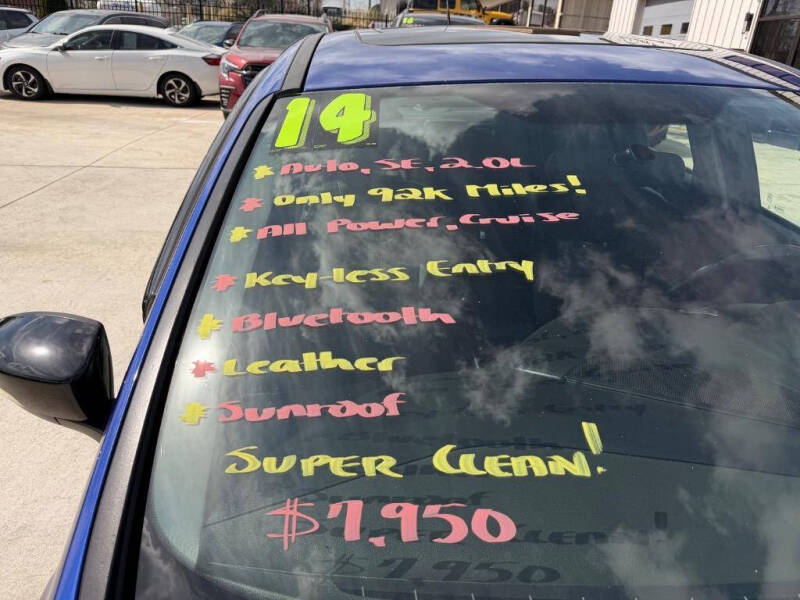 14
* Auto, SE, 2.0L
* Only 92K Miles!
* All Power, Cruise
* Key-less Entry
* Bluetooth
* Leather
* Sunroof
Super Clean!
$7,950